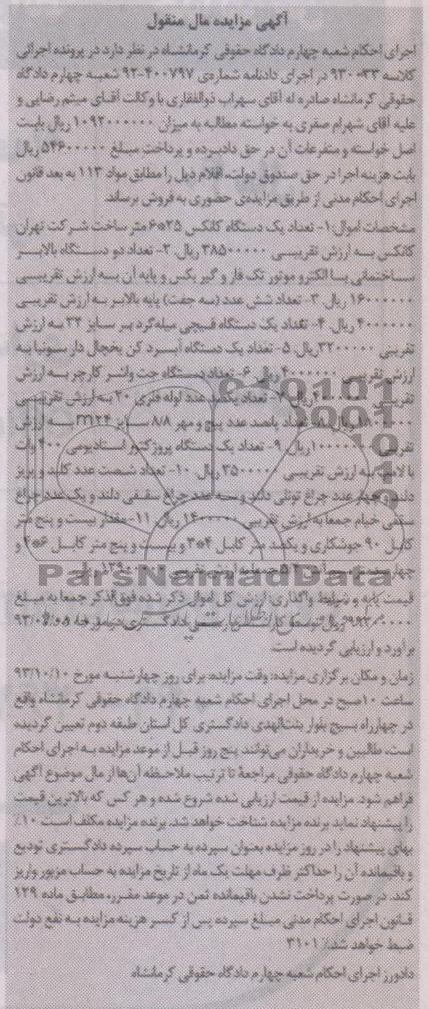 آگهی مزایده مال منقول
اجرای احکام شعبه چهارم دادگاه حقوقی کرمانشاه در نظر دارد در پرونده اجرائی
کلاسه ۹۳۰۰۳۳ در اجرای دادنامه شماره‌ی ۴۰۰۷۹۷-۹۲ شعبه چهارم دادگاه
حقوقی کرمانشاه صادره له آقای سهراب ذوالفقاری با وکالت آقای میثم رضایی و
علیه آقای شهرام صفری به خواسته مطالبه به میزان ۱۰۹۲۰۰۰۰۰۰ ریال بابت
اصل خواسته و متفرعات آن در حق دادبرده و پرداخت مبلغ ۵۴۶۰۰۰۰۰ ریال
بابت هزینه اجرا در حق صندوق دولت، اقلام ذیل را مطابق مواد ۱۱۳ به بعد قانون
اجرای احکام مدنی از طریق مزایده‌ی حضوری به فروش برساند.
مشخصات اموال: ۱- تعداد یک دستگاه کانکس ۲۵*۶ متر ساخت شرکت تهران
کانکس به ارزش تقریبی ۳۸۵۰۰۰۰۰ ریال. ۲- تعداد دو دستگاه بالابر
ساختمانی با الکترو موتور تک فاز و گیربکس و پایه آن به ارزش تقریبی
۱۶۰۰۰۰۰۰ ریال. ۳- تعداد شش عدد (سه جفت) پایه بالابر به ارزش تقریبی
۴۰۰۰۰۰۰ ریال. ۴- تعداد یک دستگاه قیچی میله‌گرد بر سایز ۳۲ به ارزش
تقریبی ۳۲۰۰۰۰۰ ریال. ۵- تعداد یک دستگاه آبسرد کن یخچال دار سونیا به
ارزش تقریبی ۴۰۰۰۰۰۰ ریال. ۶- تعداد دستگاه جت واتر کارچر به ارزش
تقریبی ریال. ۷- تعداد یکصد عدد لوله فلزی ۲۰ به ارزش تقریبی
ریال. ۸- تعداد پانصد عدد پیچ و مهر ۸/۸ سایز m۲۴ به ارزش
تقریبی ریال. ۹- تعداد یک دستگاه پروژکتور استادیومی ۴۰۰ وات
با لامپ به ارزش تقریبی ۳۵۰۰۰۰۰ ریال. ۱۰- تعداد شصت عدد کلید و پریز
دلند و چهار عدد چراغ تونلی دلند و سه عدد چراغ سقفی دلند و یک عدد چراغ
سقفی خیام جمعا به ارزش تقریبی ۱۴۰۰۰۰۰ ریال. ۱۱- مقدار بیست و پنج متر
کابل ۹۰ جوشکاری و یکصد متر کابل ۴*۳ و بیست و پنج متر کابل ۶*۴ و
ParsNamadData
قیمت پایه و شرایط واگذاری: ارزش کل اموال ذکر شده فوق‌الذکر جمعا به مبلغ
ریال توسط کارشناس رسمی دادگستری در مورخه ۹۳/۰۵/۰۵
برآورد و ارزیابی گردیده است.
زمان و مکان برگزاری مزایده: وقت مزایده برای روز چهارشنبه مورخ ۹۳/۱۰/۱۰
ساعت ۱۰صبح در محل اجرای احکام شعبه چهارم دادگاه حقوقی کرمانشاه واقع
در چهارراه بسیج بلوار بنت‌الهدی دادگستری کل استان طبقه دوم تعیین گردیده
است، طالبین و خریداران می‌توانند پنج روز قبل از موعد مزایده به اجرای احکام
شعبه چهارم دادگاه حقوقی مراجعة تا ترتیب ملاحظه آن‌ها از مال موضوع آگهی
فراهم شود. مزایده از قیمت ارزیابی شده شروع شده و هر کس که بالاترین قیمت
را پیشنهاد نماید برنده مزایده شناخت خواهد شد. برنده مزایده مکلف است ۱۰٪
بهای پیشنهاد را در روز مزایده بعنوان سپرده به حساب سپرده دادگستری تودیع
و باقیمانده آن را حداکثر ظرف مهلت یک ماه از تاریخ مزایده به حساب مزبور واریز
کند. در صورت پرداخت نشدن باقیمانده ثمن در موعد مقرر، مطابق ماده ۱۲۹
قانون اجرای احکام مدنی مبلغ سپرده پس از کسر هزینه مزایده به نفع دولت
ضبط خواهد شد./ ۳۱۰۱
دادورز اجرای احکام شعبه چهارم دادگاه حقوقی کرمانشاه